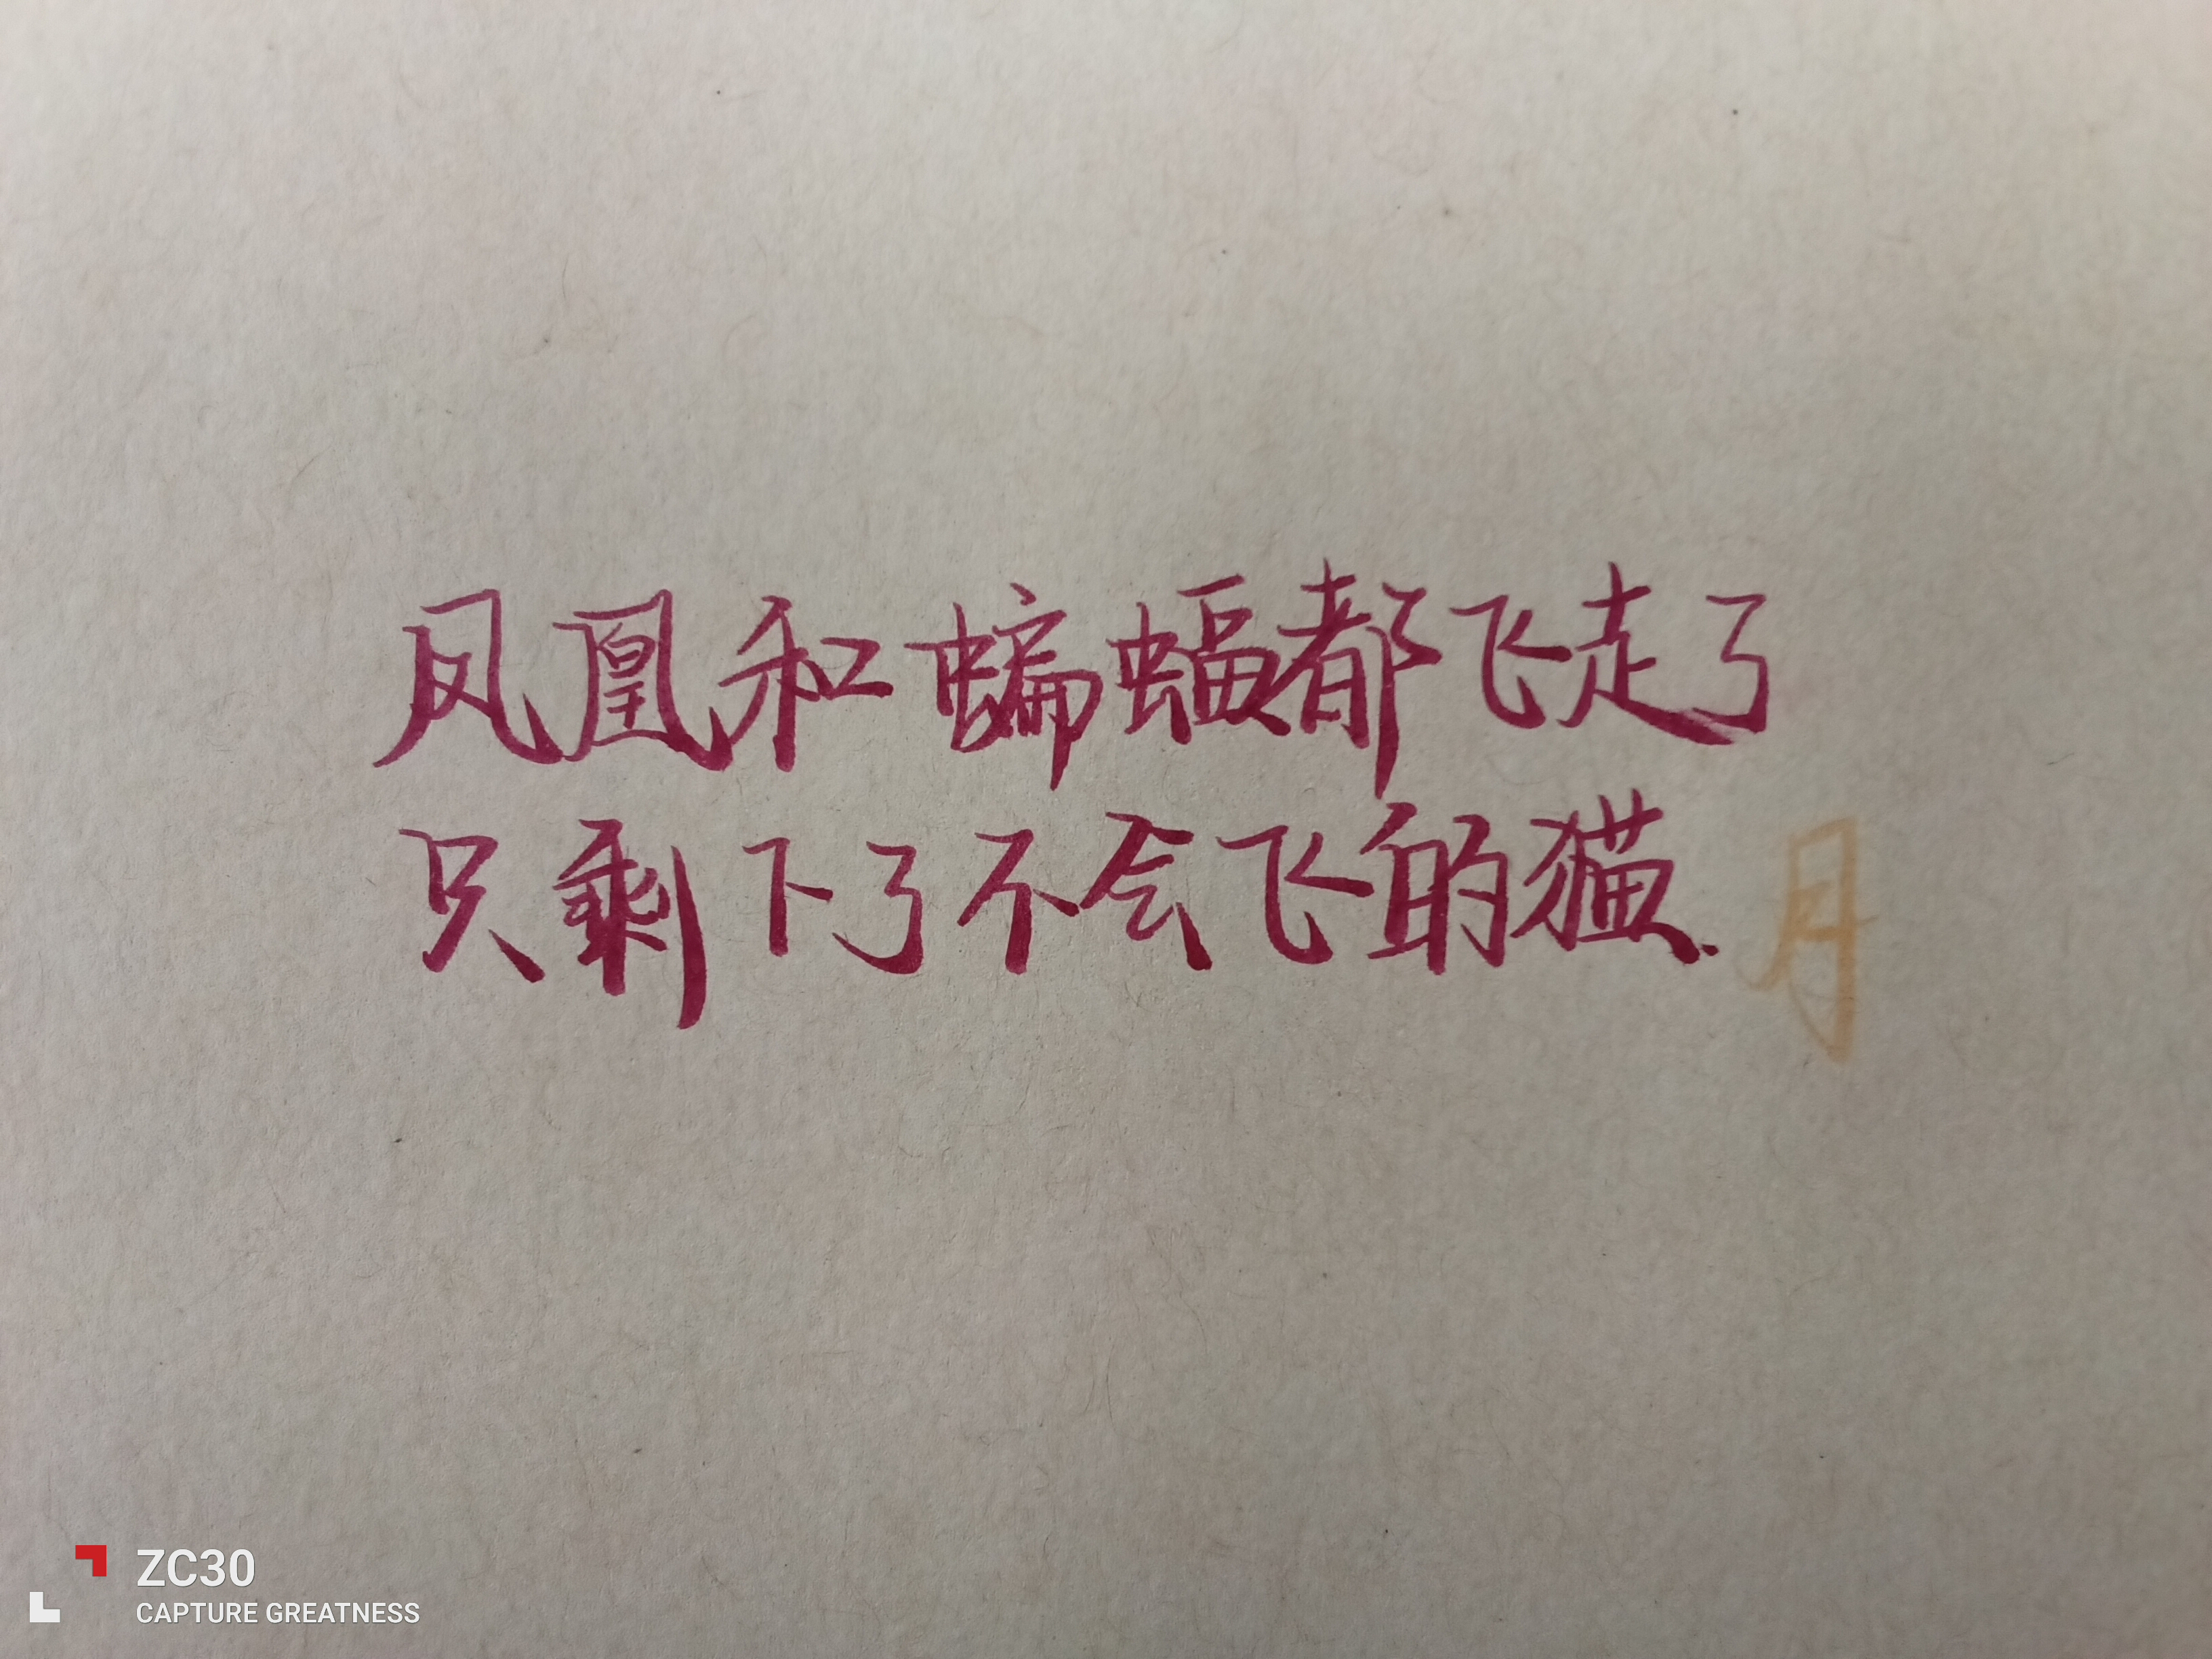 凤凰和蝙蝠都飞走了
只剩下了不会飞的猫. 月
ZC30
CAPTURE GREATNESS